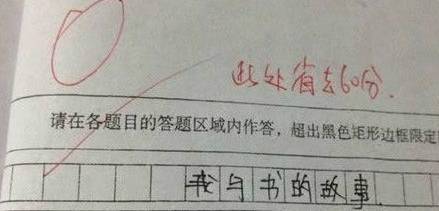 此处省去60分.
请在各题目的答题区域内作答，超出黑色矩形边框限定
我与书的故事.